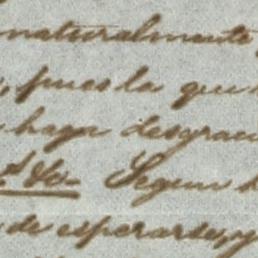 naturalmente
, pues la que
haga desgrac
Segun h
de esperarse, y